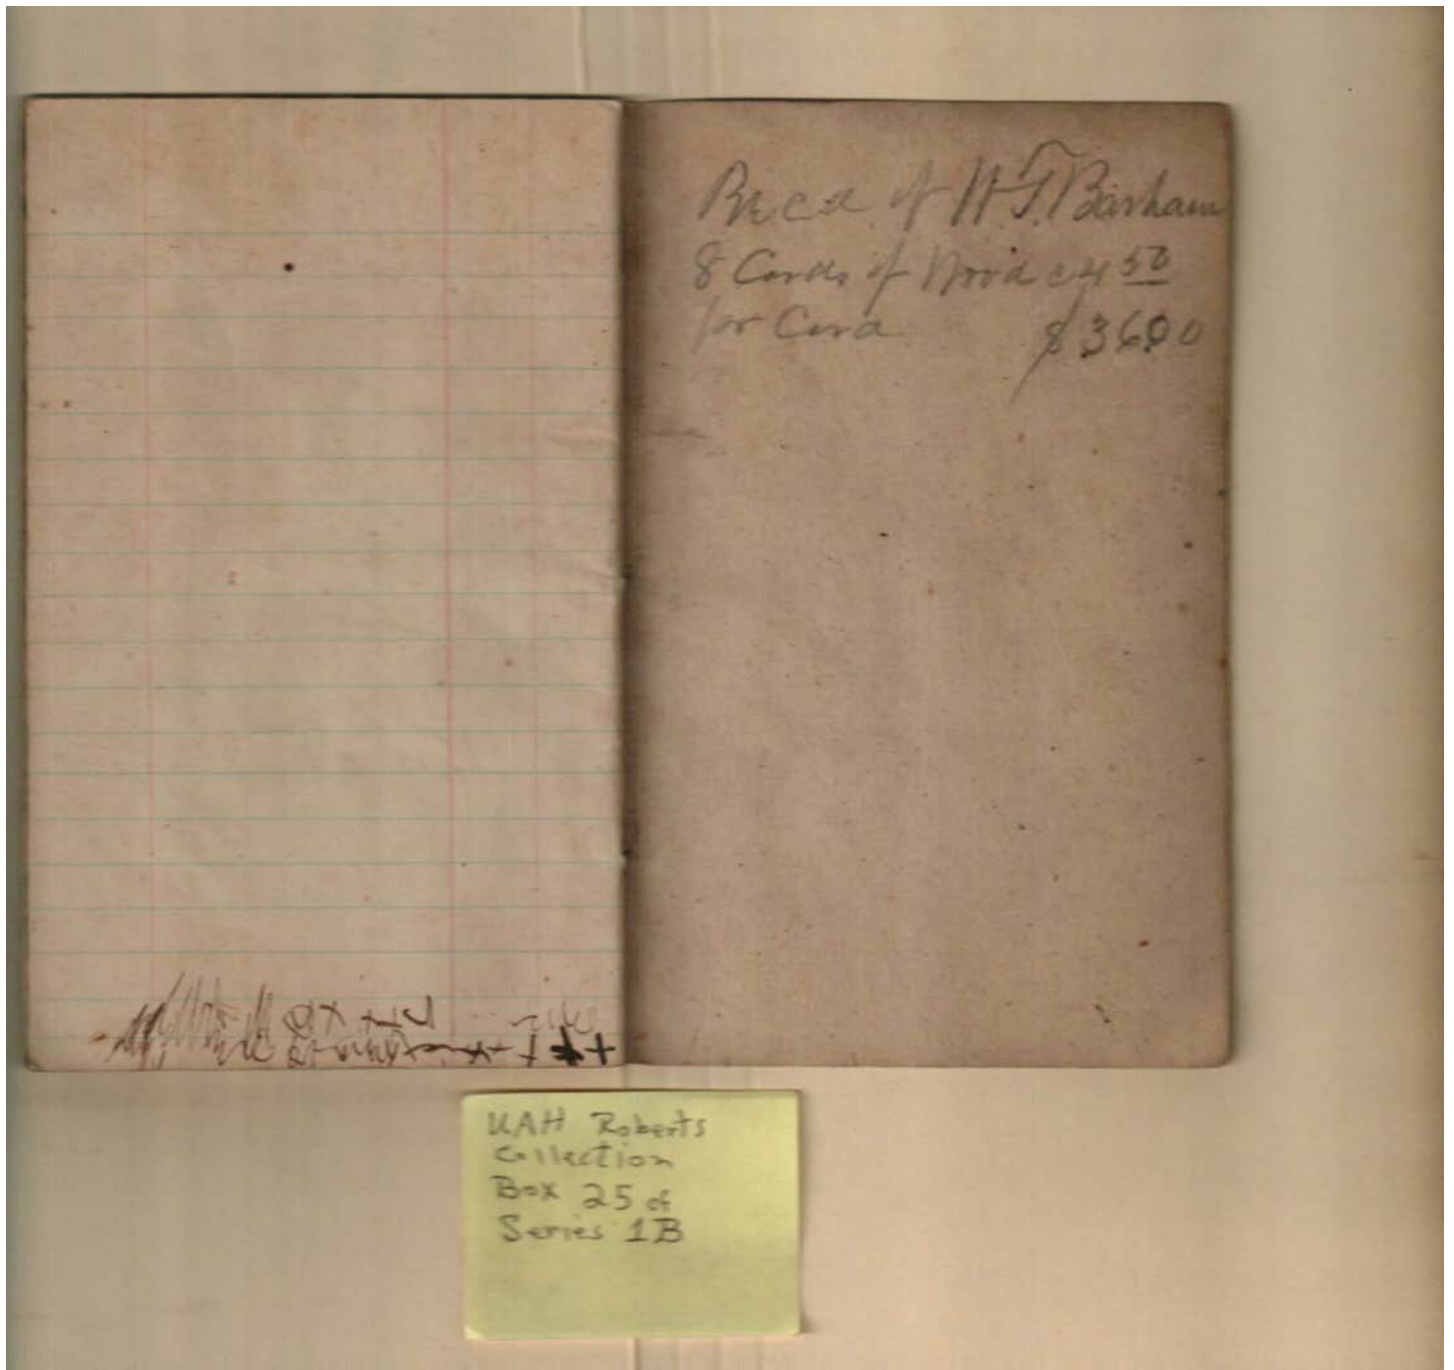 Recd of W.T. Barham
8 Cords of Wood @ 4 50
for Cord $36.00
UAH Roberts
Collection
Box 25 of
Series 1B